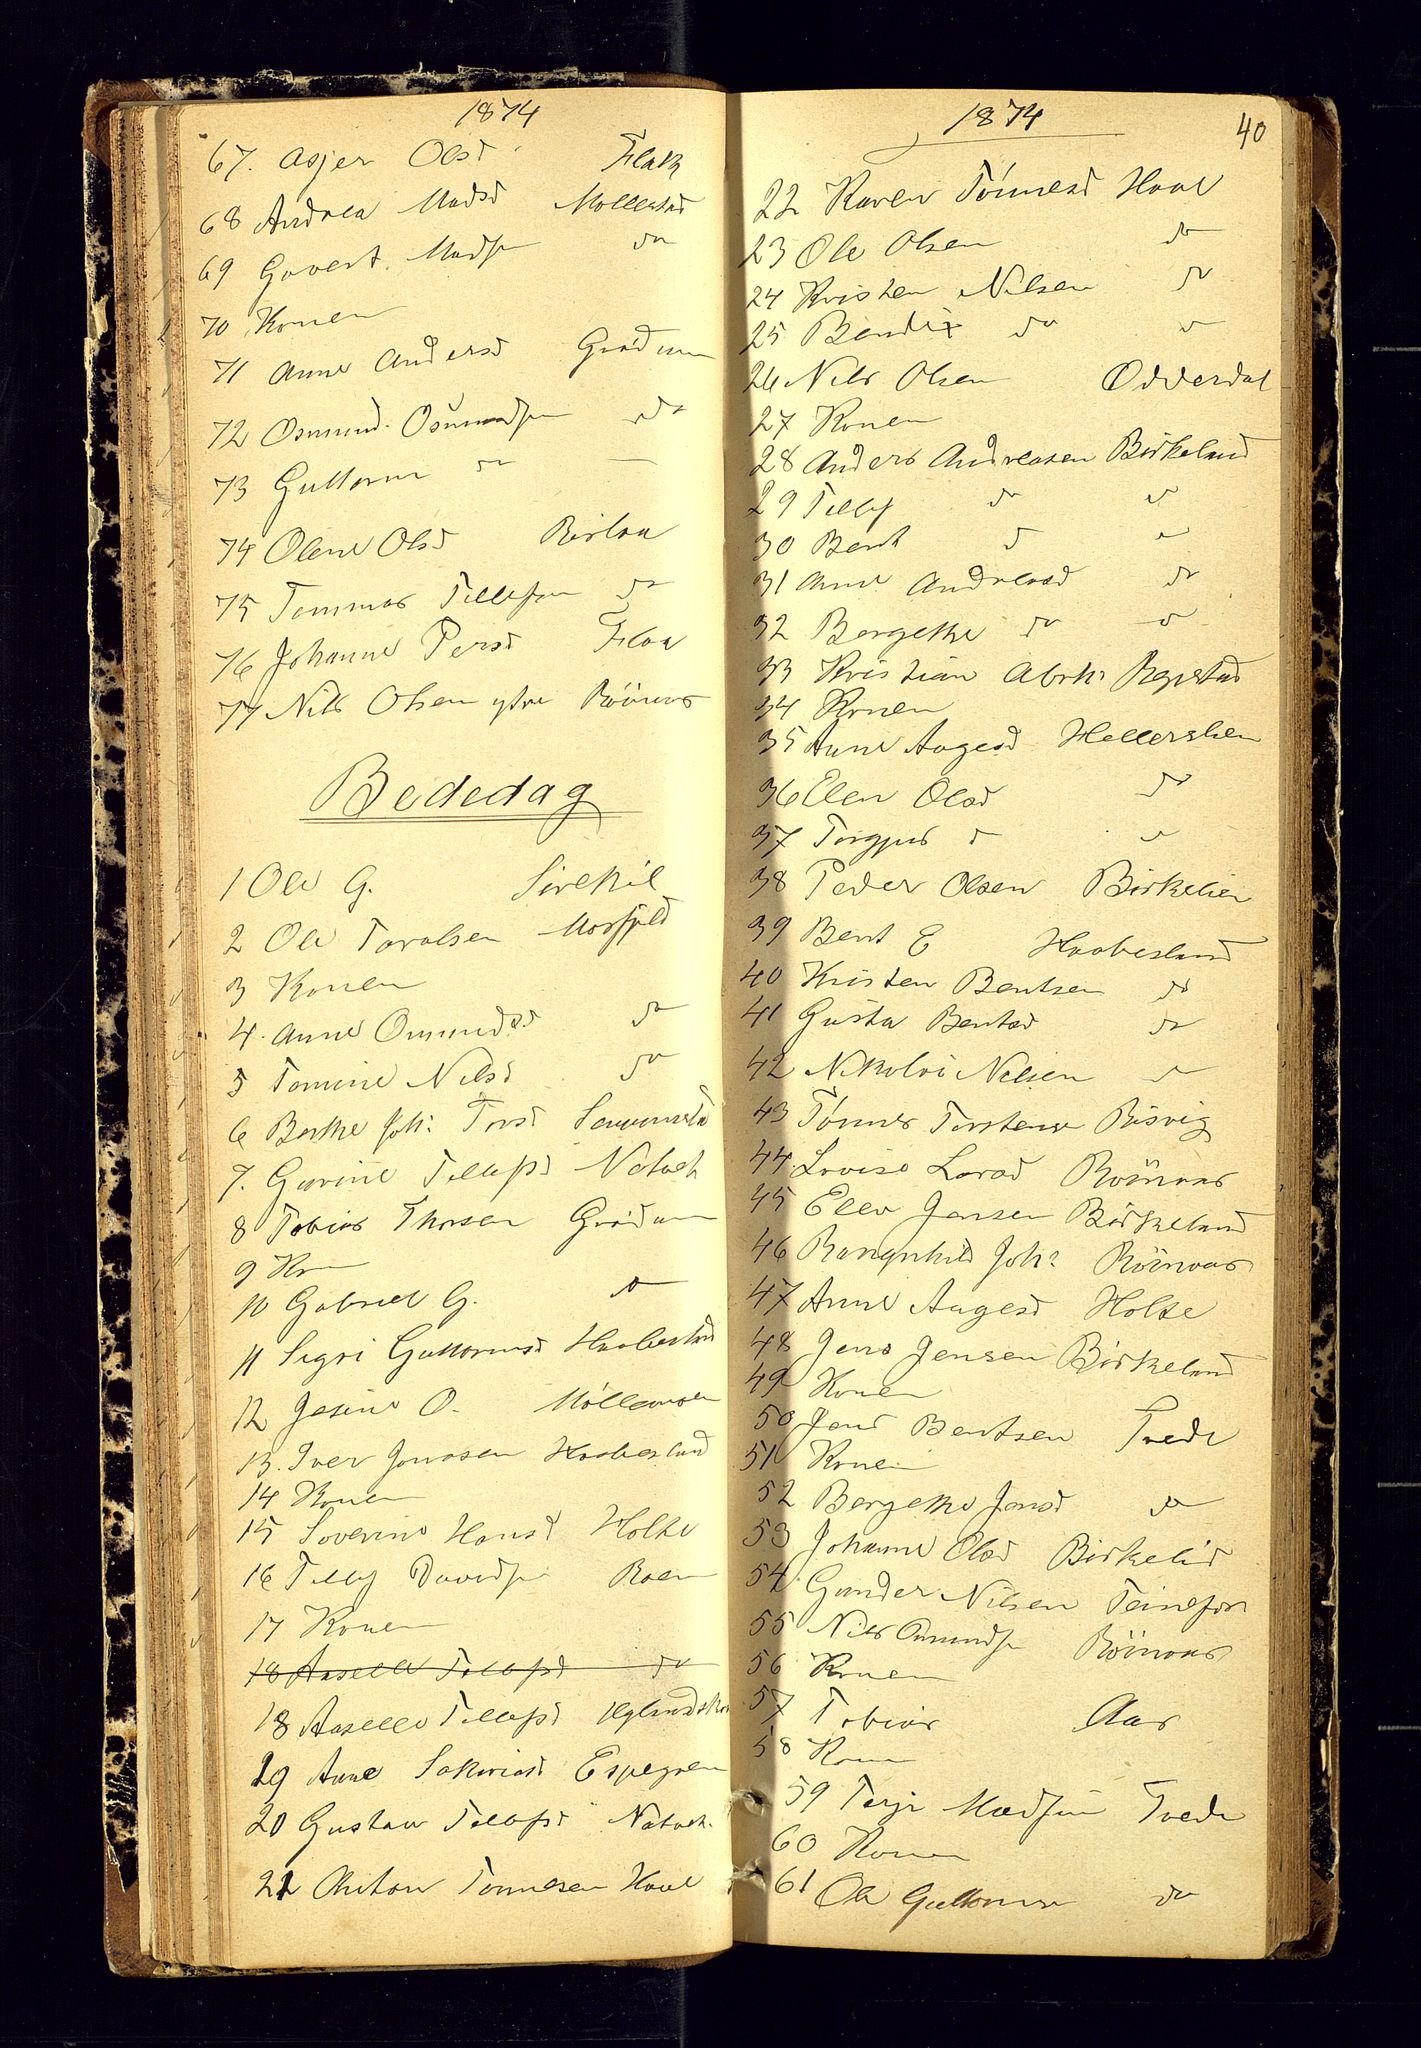 1874
67. Asjer Olsd Flak
68 Andrea Madsd Mollestad
69 Govert. Madsn do
70 Konen
71 Anne Andersd Grødum
72 Osmund. Osmundsn do
73 Guttorm do —
74 Olene Olsd Risløa
75 Tommas Tellefsen do
76 Johanne Persd Flaa
77 Nils Olsen ytre Røinaas
Bededag
1 Ole G. Sivekil
2 Ole Taralsen Morfjeld
3 Konen
4. Anne Omundsd do
5 Tomine Nilsd do
6 Berthe Joh: Torsd
7. Gurine Tellefsd Natvet
8 Tobias Thorsen Grødum
9 Kon
10 Gabriel G. do
11 Sigri Guttormsd Haabesland
12 Jesine O. Møllemoen
13. Iver Jonasen Haabesland
14 Konen
15 Soverine Hansd Holte
16 Tellef Davidsn Roen
17 Konen
18 Aaselle Tellefsd do
18 Aaselle Tellefsd
19 Anne Sakariasd Espegren
20 Gustav Tellefsd Natvet.
21 Anton Tønnesen Haal
1874
40
22 Karen Tønnesd Haal
23 Ole Olsen do
24 Kristen Nilsen do
25 Bendix do do
26 Nils Olsen Odderdal
27 Konen
28 Anders Andreasen Birkeland
29 Tellef do do
30 Bent do do
31 Anne Andreasd do
32 Bergethe do do
33 Kristian Abrh: Repstad
34 Konen
35 Anne Aagesd Hellerslien
36 Elen Olsd do
37 Torgjus d do
38 Peder Olsen Birkelien
39 Bent E Haabesland
40 Kristen Bentsen do
41 Gusta Bentsd do
42 Nikolai Nilsen do
43 Tønnes Torstens Risvig
44. Lovise Larsd Røinaas
45 Ellev Jensen Birkeland
46 Rangnhild Joh: Røinaas
47 Anne Aagesd Holte
48 Jens Jensen Birkeland
49 Konen
50 Jens Bentsen Tvede
51 Konen
52 Bergethe Jensd do
53 Johanne Olsd Birkelid
54. Gunder Nilsen Teinefos
55 Nils Omundsn Røinaas
56 Konen
57 Tobias Aas
58 Konn
59 Terje Madsen Tvede
60 Konen
61 Ole Guttormsn do